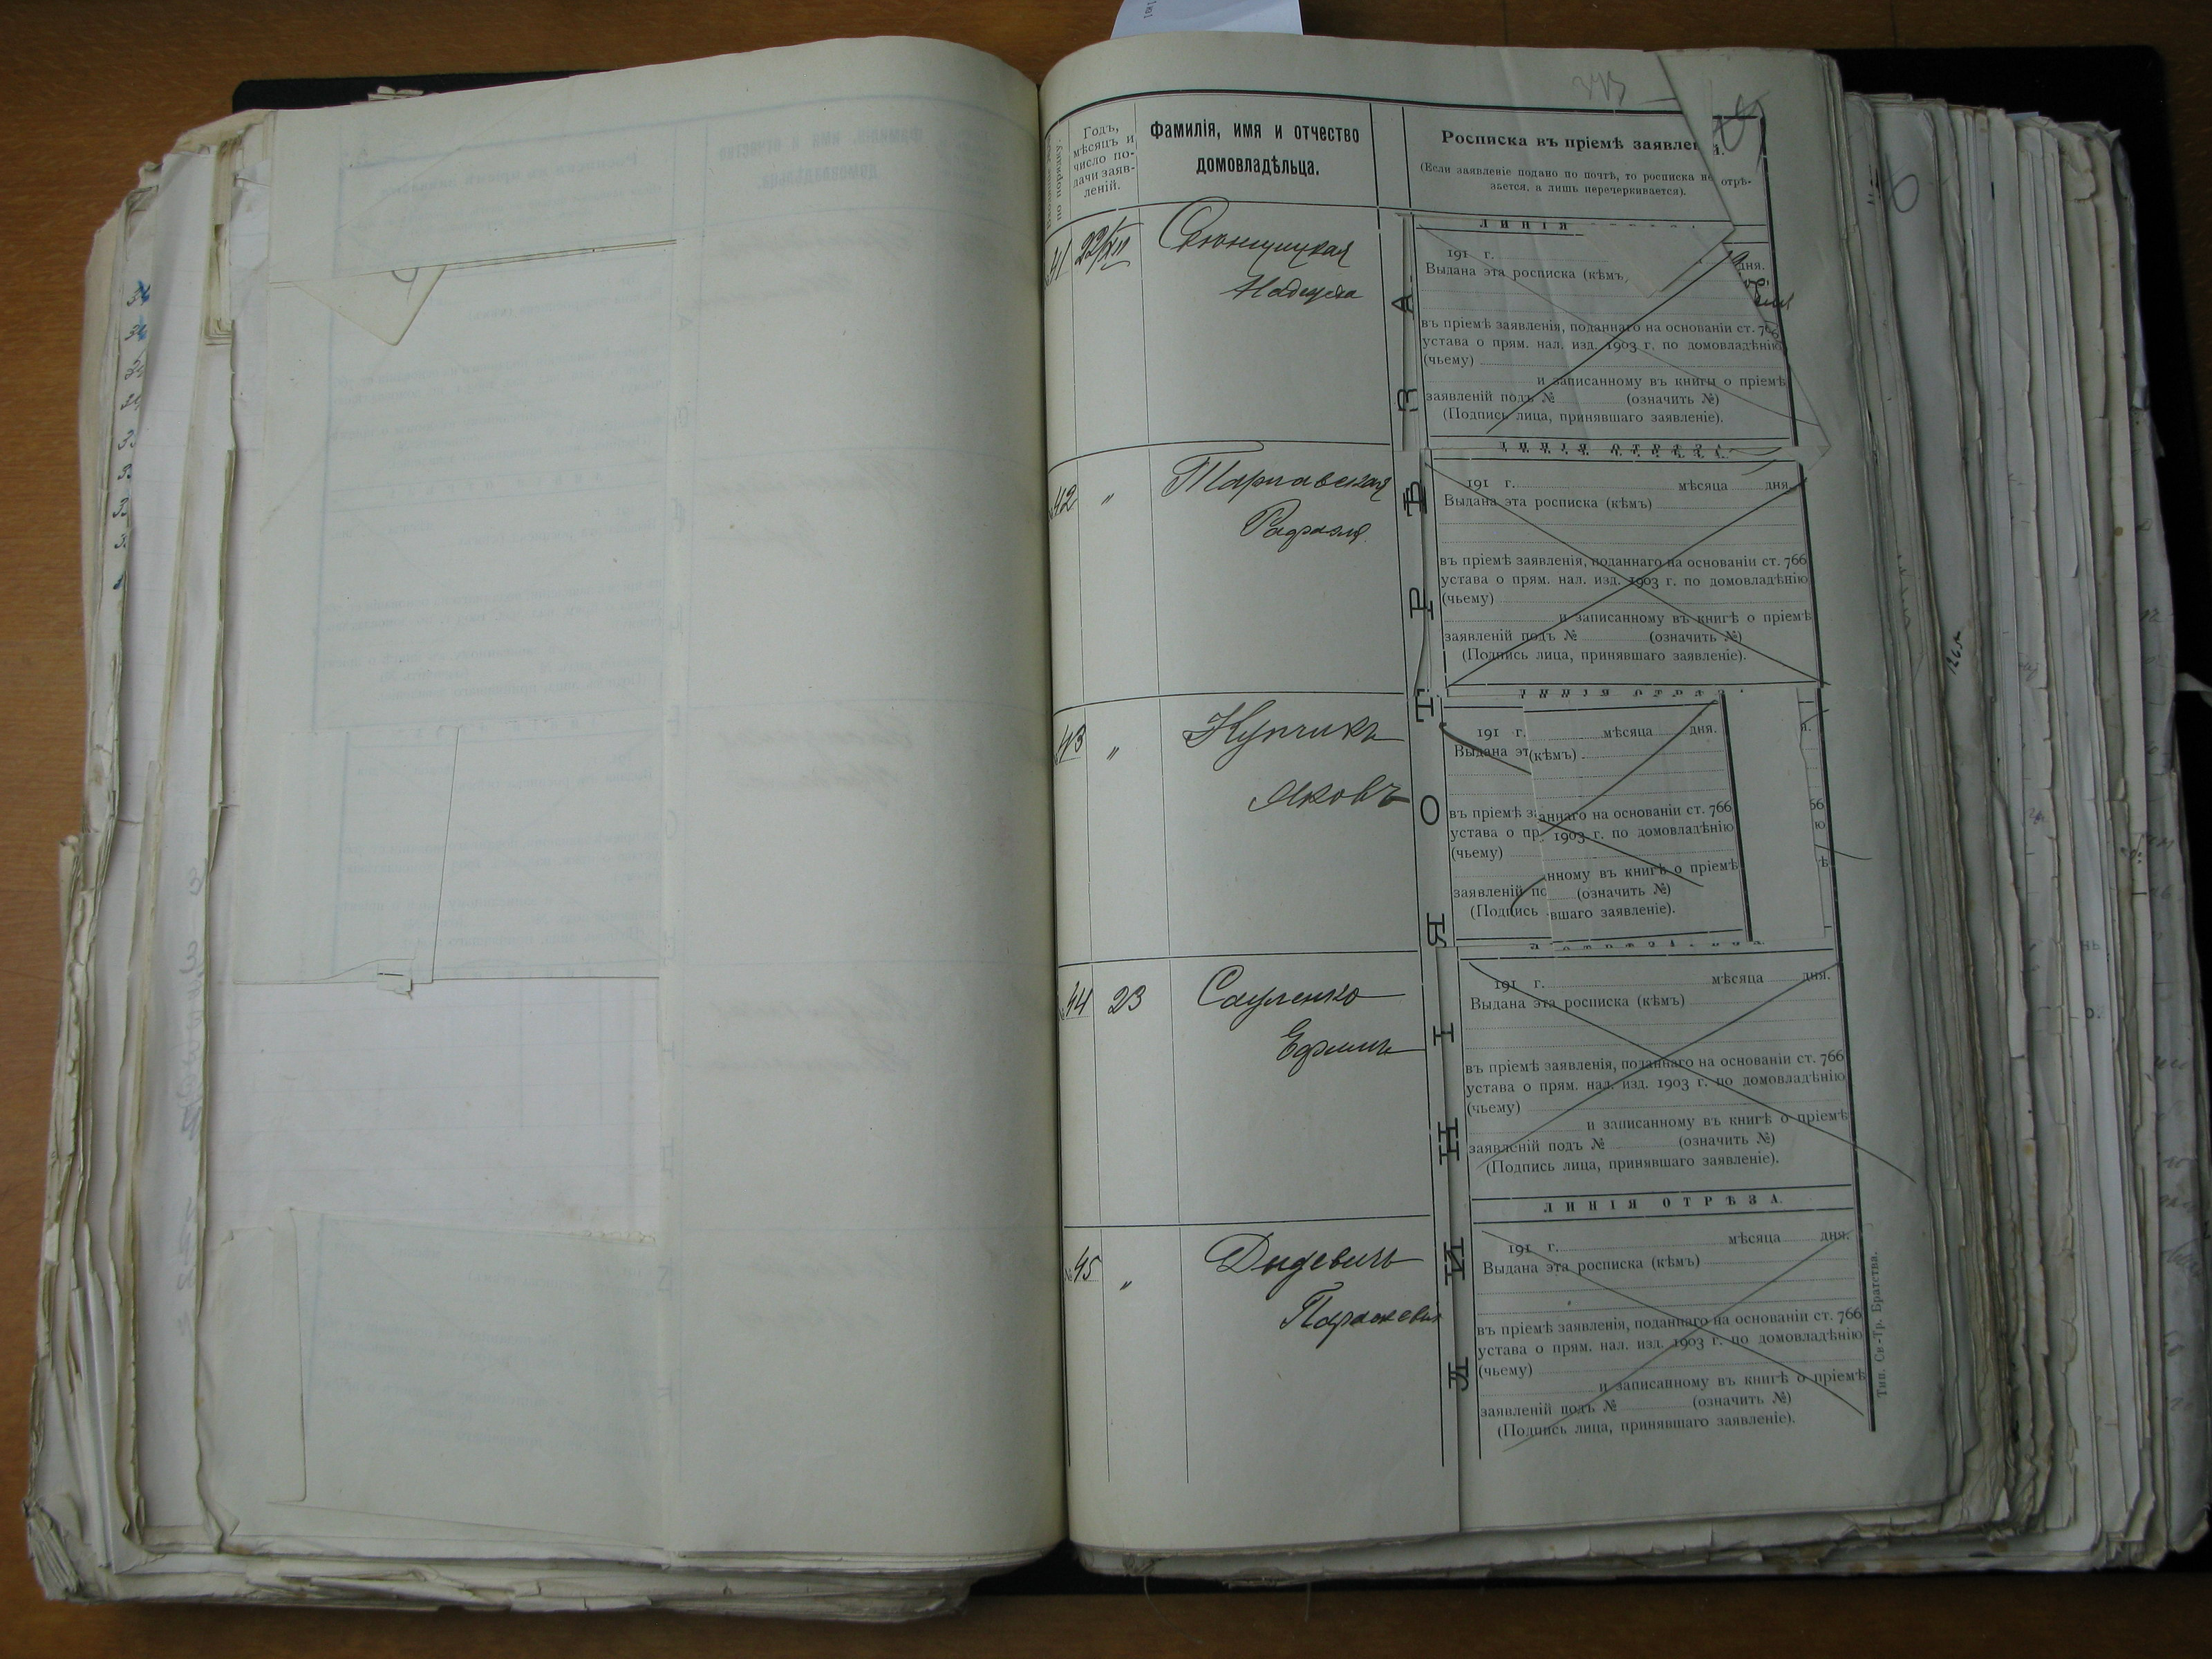 по порядку.
Годъ,
мѣсяцъ и
число по-
дачи заяв-
леній.
Фамилія, имя и отчество
домовладѣльца.
Росписка въ пріемѣ заявлен
(Если заявленіе подано по почтѣ, то росписка не отрѣ-
зается, а лишь перечеркивается).
41
22/XII
Надежда
ЛИНІЯ
191 г.
дня.
Выдана эта росписка (кѣмъ
въ пріемѣ заявленія, поданнаго на основаніи ст. 766
устава о прям. нал. изд. 1903 г. по домовладѣнію
(чьему)
и записанному въ книгы о пріемѣ
заявленій подъ № (означить №)
(Подпись лица, принявшаго заявленіе).
ЛИНІЯ ОТРѢЗА
42
"
Тарнавская
Рафаэля
191 г. мѣсяца дня
Выдана эта росписка (кѣмъ)
въ пріемѣ заявленія, поданнаго на основаніи ст. 766
устава о прям. нал. изд. 1903 г. по домовладѣнію
(чьему)
и записанному въ книгѣ о пріемѣ
заявленій подъ № (означить №)
(Подпись лица, принявшаго заявленіе).
43
"
Купчикъ
Яковъ
191 г. мѣсяца дня.
Выдана эт (кѣмъ)
въ пріемѣ за аннаго на основаніи ст. 766
устава о пр 1903 г. по домовладѣнію
(чьему)
нному въ книгѣ о пріемѣ
заявленій по (означить №)
(Подпись вшаго заявленіе).
№ 44
23
Сауленко
Ефимъ
191 г. мѣсяца дня.
Выдана эта росписка (кѣмъ)
въ пріемѣ заявленія, поданнаго на основаніи ст. 766
устава о прям. нал. изд. 1903 г. по домовладѣнію
(чьему)
и записанному въ книгѣ о пріемѣ
заявленій подъ № (означить №)
(Подпись лица, принявшаго заявленіе).
ЛИНІЯ ОТРѢЗА.
№ 45
"
Дыдевичъ
191 г. мѣсяца дня.
Выдана эта росписка (кѣмъ)
въ пріемѣ заявленія, поданнаго на основаніи ст. 766
устава о прям. нал. изд. 1903 г. по домовладѣнію
(чьему)
и записанному въ книгѣ о пріемѣ
заявленій подъ № (означить №)
(Подпись лица, принявшаго заявленіе).
ЛИННЫЯ ОТРѢЗА
Тип. Св.-Тр. Братства.